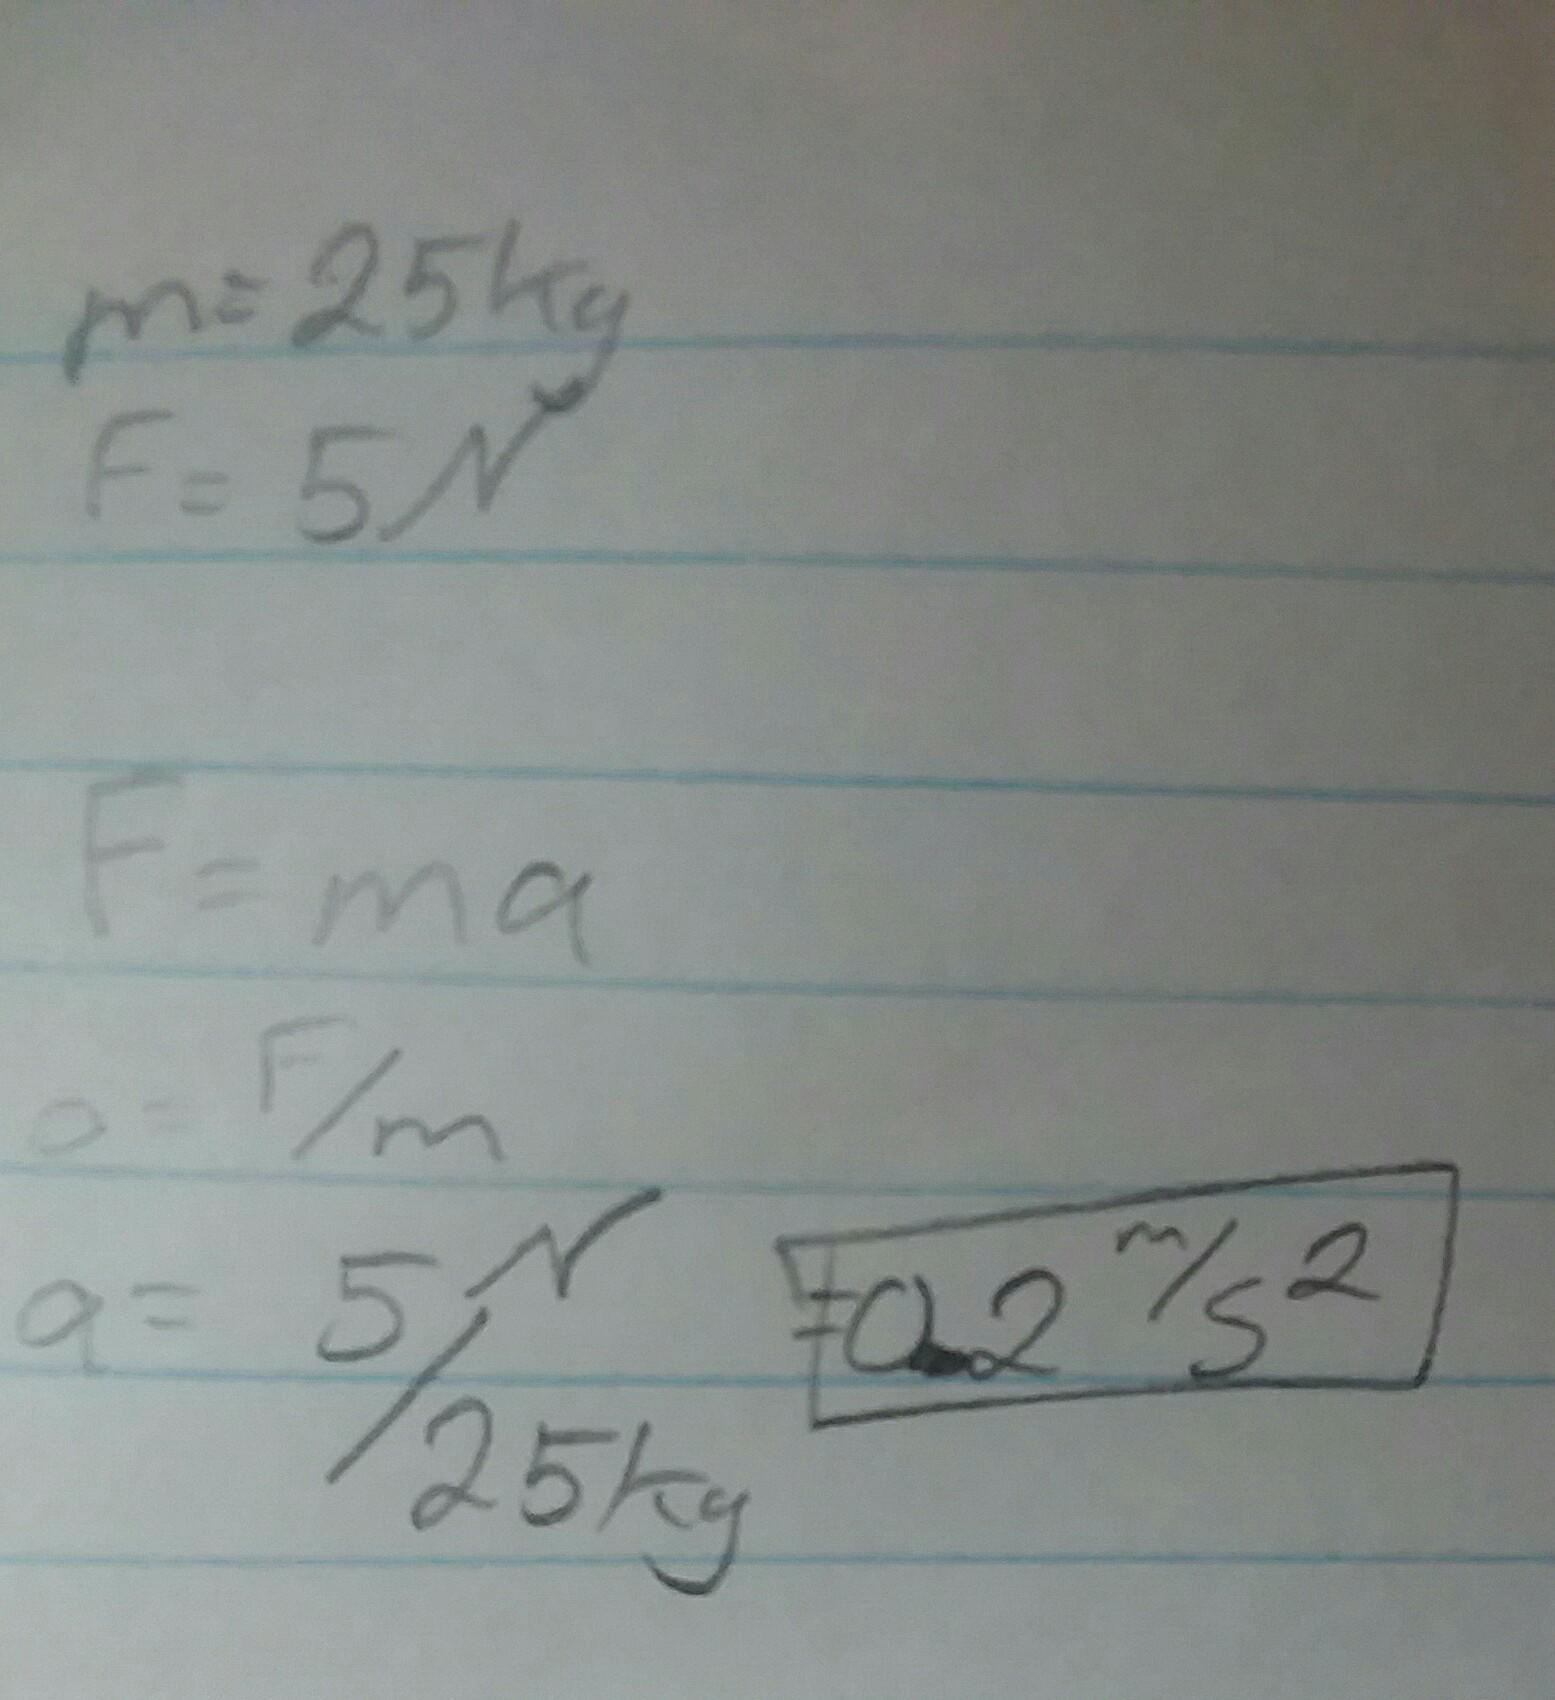 m= 25kg
F= 5N
F= ma
a= F/m
a= 5N/25kg =0.2 m/s²